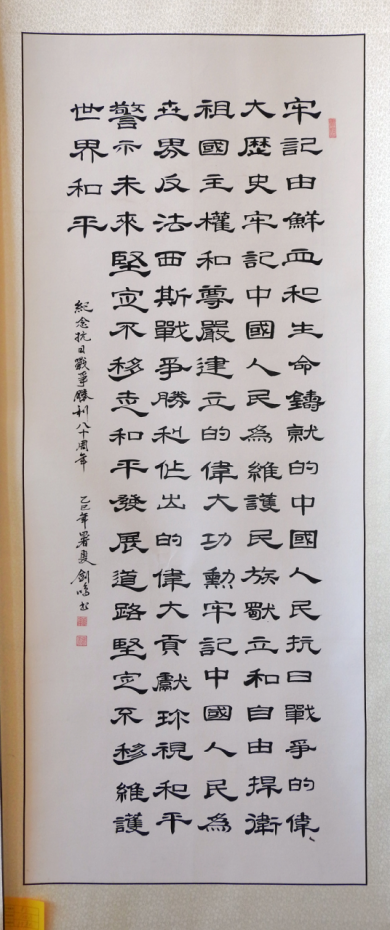 牢記由鮮血和生命鑄就的中國人民抗日戰爭的偉
大歷史牢記中國人民為維護民族獨立和自由捍衛
祖國主權和尊嚴建立的偉大功勳牢記中國人民為
世界反法西斯戰爭勝利作出的偉大貢獻珍視和平
警示未來堅定不移走和平發展道路堅定不移維護
世界和平
紀念抗日戰爭勝利八十周年 乙巳年署夏劍鳴書